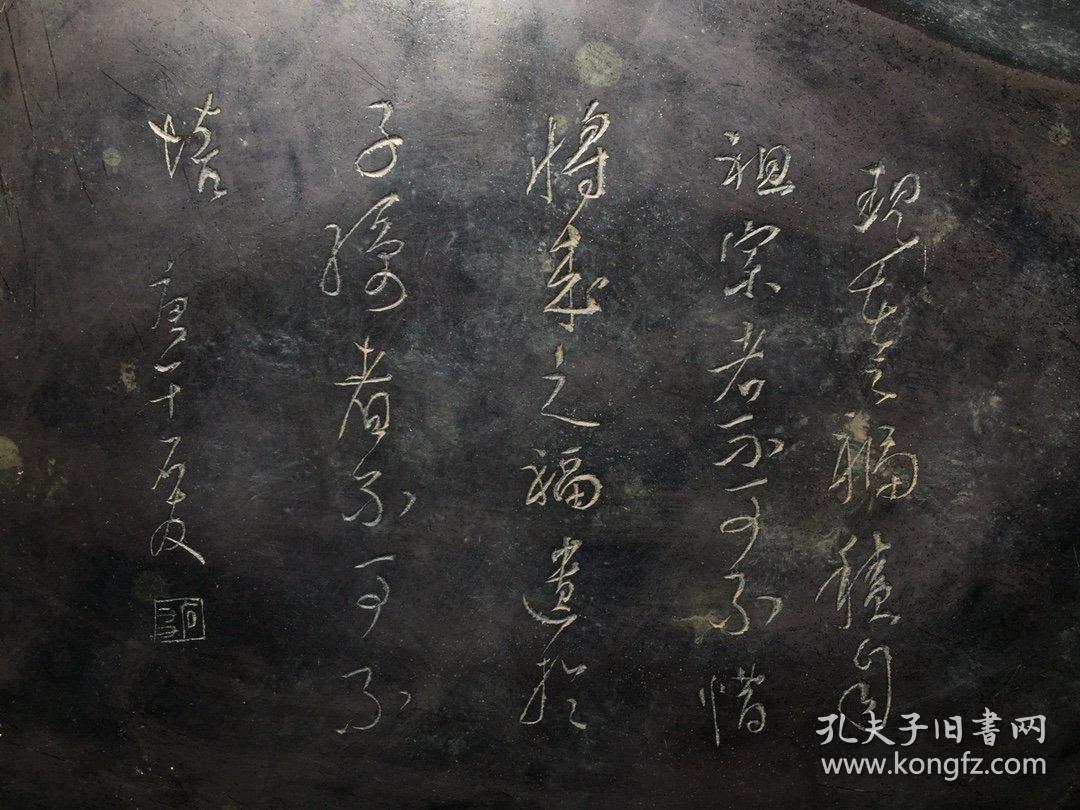 現在之福積自
祖宗者不可不惜
將來之福遺於
子孫者不可不
培
孔夫子旧书网
www.kongfz.com